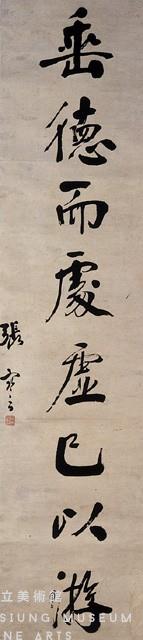 垂德而處虛己以游
張寓言
立美術館
SIUNG MUSEUM
NE ARTS